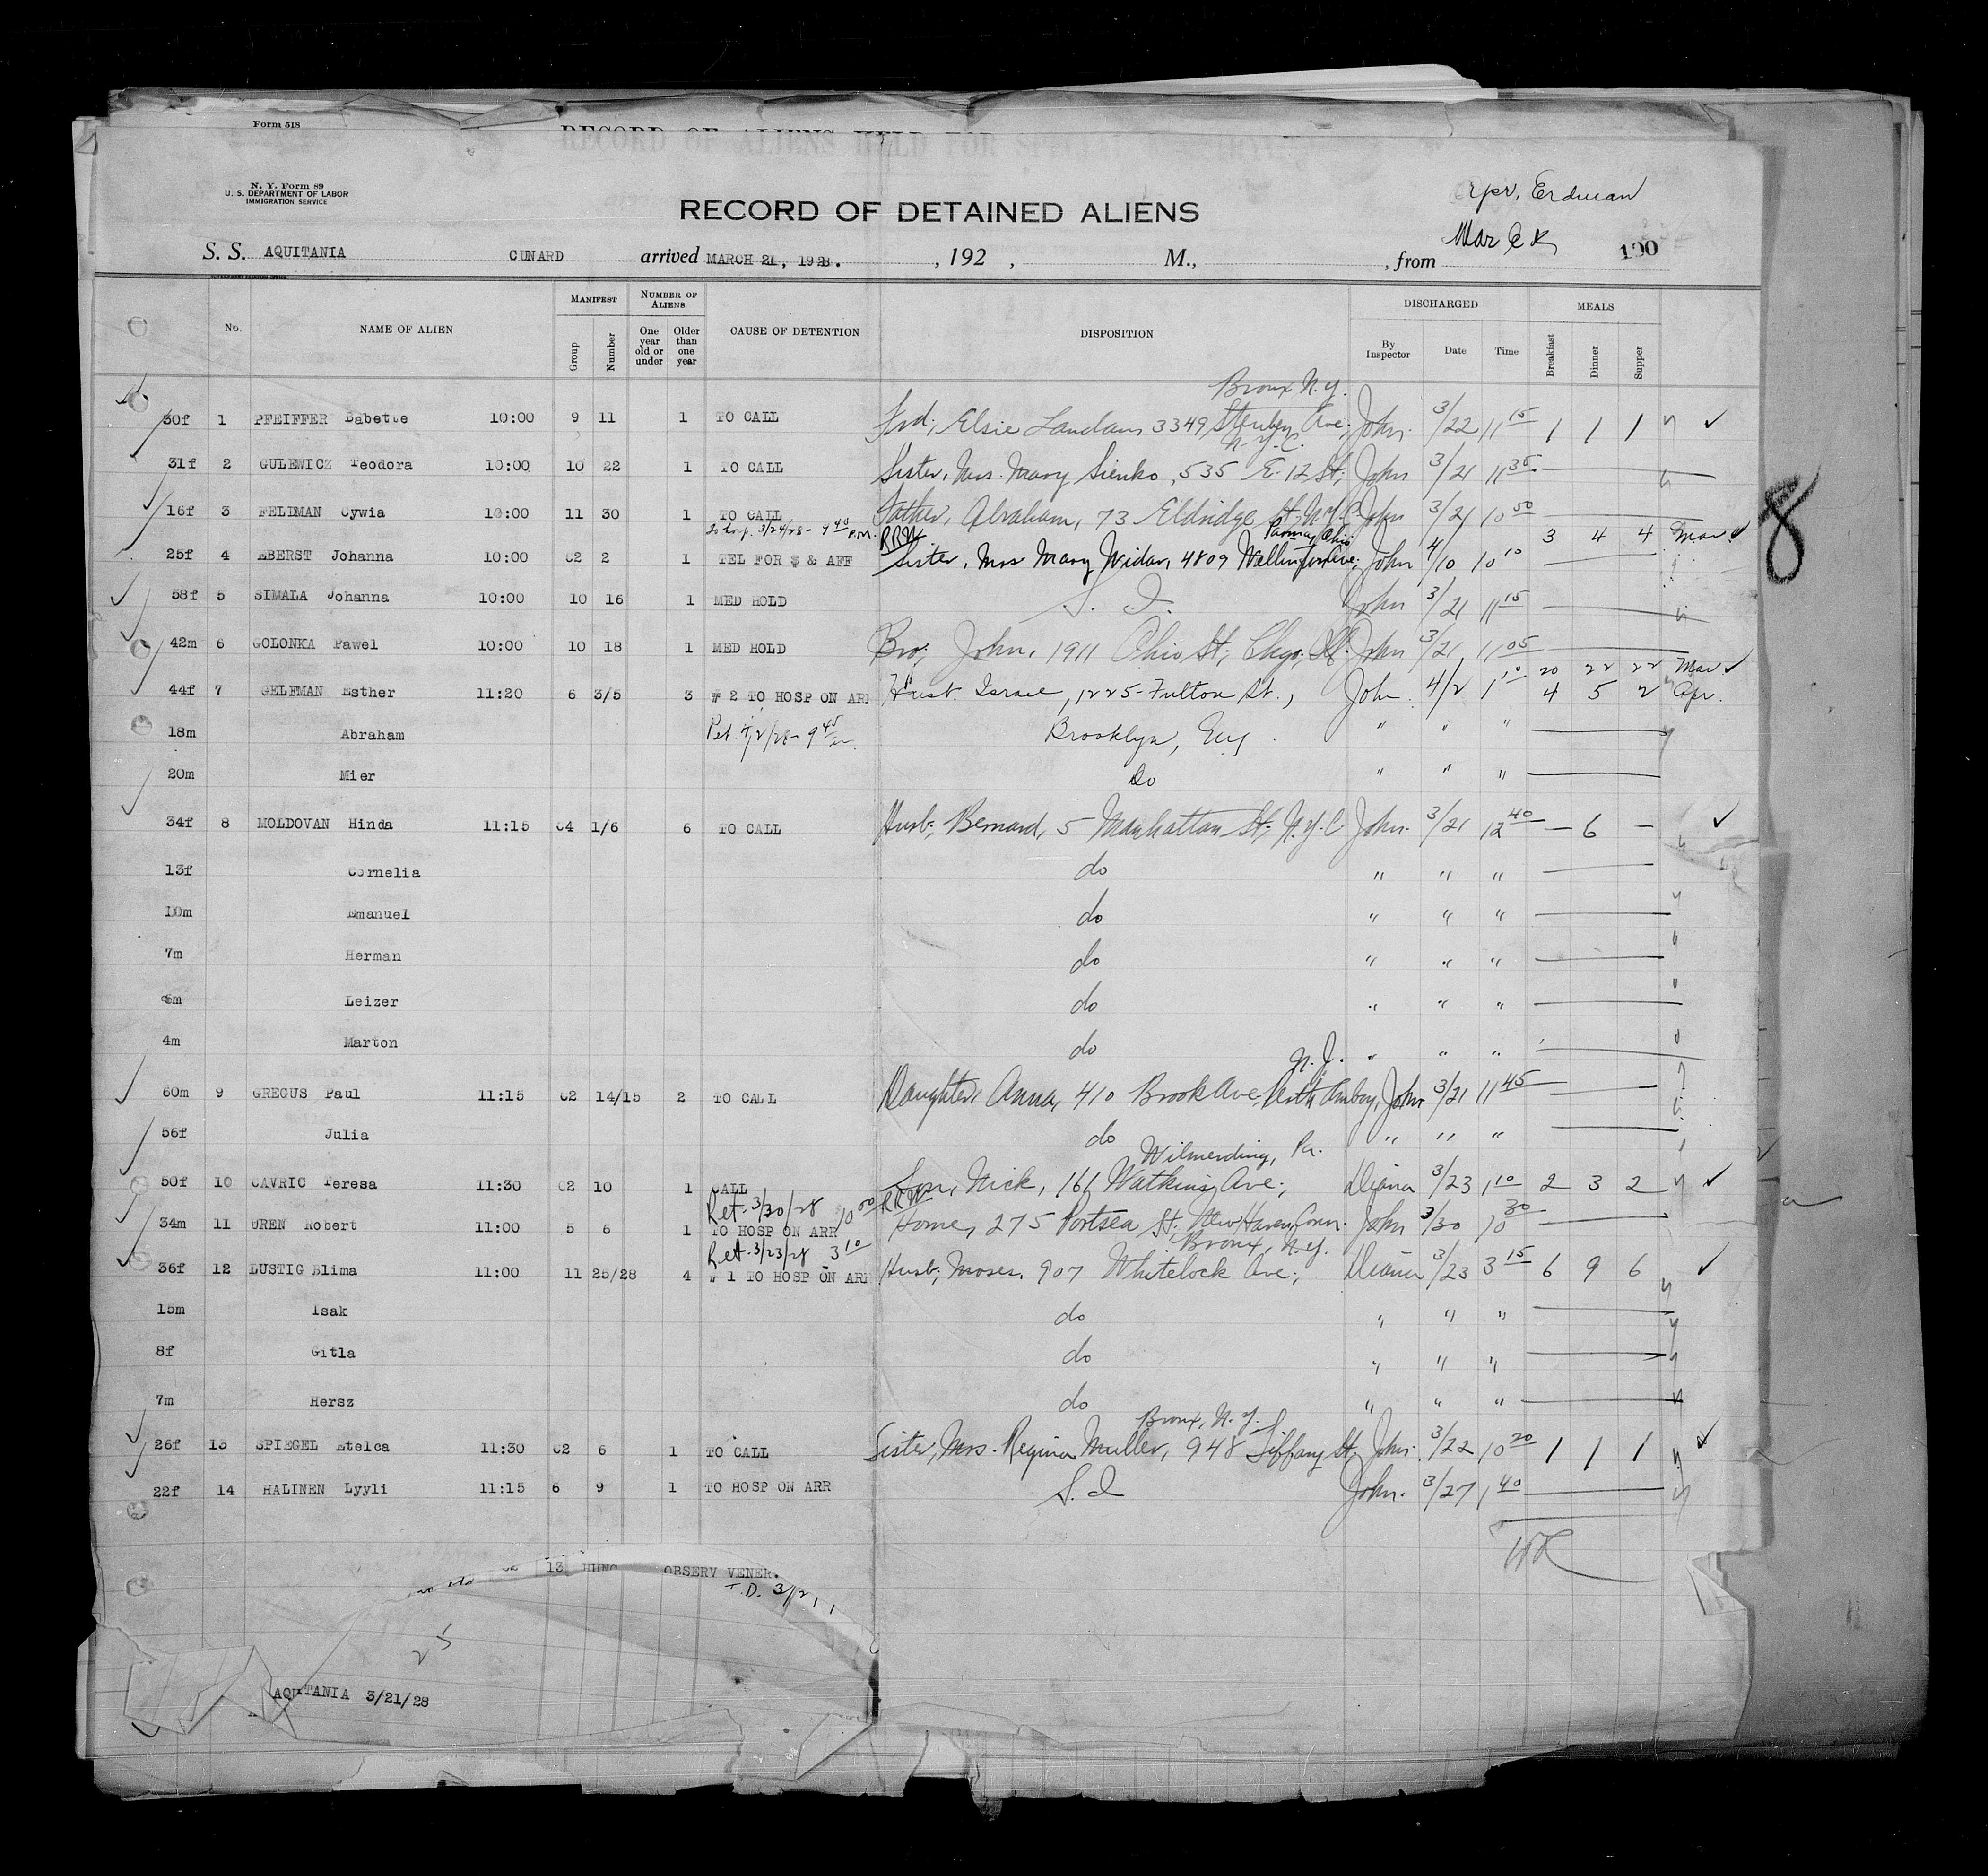 Form 518
RECORD OF ALIENS HELD FOR SPECIAL INQUIRY
N. Y. Form 89
U. S. DEPARTMENT OF LABOR
IMMIGRATION SERVICE
Apr. Erdman
RECORD OF DETAINED ALIENS
Mar
S. S. AQUITANIA CUNARD arrived MARCH 21, 1928. , 192 , M., , from 190
No. NAME OF ALIEN MANIFEST Group Number NUMBER OF ALIENS One year old or under Older than one year CAUSE OF DETENTION DISPOSITION DISCHARGED By Inspector Date Time MEALS Breakfast Dinner Supper
Bronx N.Y.
30f 1 PFEIFFER Babette 10:00 9 11 1 TO CALL Frd; Elsie Landau, 3349 Steuben Ave; John. 3/22 11 15 1 1 1
N.Y.C.
31f 2 GULEWICZ Teodora 10:00 10 22 1 TO CALL Sister, Mrs. Mary Sienko, 535 E. 12 St; John 3/21 11 35
16f 3 FELDMAN Cywia 10:00 11 30 1 TO CALL Father, Abraham, 73 Eldridge St, N.Y.C. John 3/21 10 50
To hosp. 3/24/28 - 9 40 P.M. RRW Parma, Ohio 3 4 4 Mar
25f 4 EBERST Johanna 10:00 02 2 1 TEL FOR $ & AFF Sister, Mrs Mary Widar, 4809 Wellington Ave; John 4/10 10 10
58f 5 SIMALA Johanna 10:00 10 16 1 MED HOLD S. I. John 3/21 11 15
42m 6 GOLONKA Pawel 10:00 10 18 1 MED HOLD Bro; John, 1911 Ohio St; Chgo; Ill. John 3/21 11 05
20 22 22 Mar
44f 7 GELFMAN Esther 11:20 6 3/5 3 # 2 TO HOSP ON ARR Husb. Israel, 1225-Fulton St., John. 4/2 1 10 4 5 2 Apr.
18m Abraham Ret. 4/2/28 - 9 45 Brooklyn, " " "
20m Mier Do " " "
34f 8 MOLDOVAN Hinda 11:15 04 1/6 6 TO CALL Husb; Bernard, 5 Manhattan St; N.Y.C. John. 3/21 12 40 — 6 —
13f Cornelia do " " "
10m Emanuel do " " "
7m Herman do " " "
6m Leizer do " " "
4m Marton do " " "
N.J.
60m 9 GREGUS Paul 11:15 02 14/15 2 TO CALL Daughter, Anna, 410 Brook Ave, Perth Amboy, John 3/21 11 45
56f Julia do " " "
Wilmerding, Pa.
50f 10 CAVRIC Teresa 11:30 02 10 1 CALL Son, Nick, 161 Watkins Ave; Diana 3/23 1 10 2 3 2
Ret. 3/30/28 10 00 RRW
34m 11 UREN Robert 11:00 5 6 1 TO HOSP ON ARR Home, 275 Portsea St. New Haven, Conn. John 3/30 10 30
Ret. 3/23/28 3 10 Bronx, N.Y.
36f 12 LUSTIG Blima 11:00 11 25/28 4 # 1 TO HOSP ON ARR Husb; Moses, 907 Whitelock Ave; Diana 3/23 3 15 6 9 6
15m Isak do " " "
8f Gitla do " " "
7m Hersz do " " "
Bronx, N.Y.
26f 13 SPIEGEL Etelca 11:30 02 6 1 TO CALL Sister, Mrs. Regina Muller, 948 Tiffany St; John. 3/22 10 20 1 1 1
22f 14 HALINEN Lyyli 11:15 6 9 1 TO HOSP ON ARR S. I John. 3/27 1 40
13 HUNG OBSERV VENER.
T.D. 3/21
25
AQUITANIA 3/21/28
8